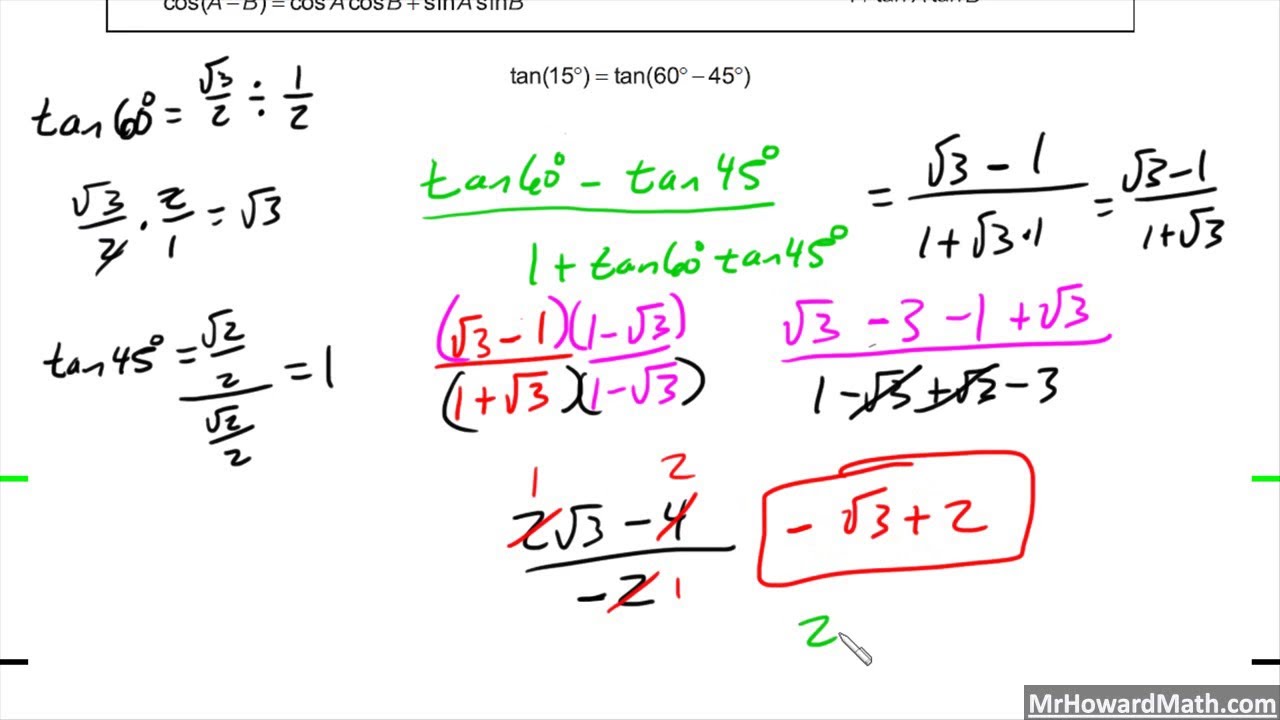 cos(A − B) = cos A cos B + sin A sin B
tan(15°) = tan(60° − 45°)
tan60° = √3/2 ÷ 1/2
√3/2 · 2/1 = √3
tan45° = (√2/2)/(√2/2) = 1
(tan60° − tan45°)/(1 + tan60° tan45°) = (√3 − 1)/(1 + √3·1) = (√3 − 1)/(1 + √3)
(√3 − 1)(1 − √3)/(1 + √3)(1 − √3)
(√3 − 3 − 1 + √3)/(1 − √3 + √3 − 3)
1 2
(2√3 − 4)/(−2) 1
− √3 + 2
2
MrHowardMath.com